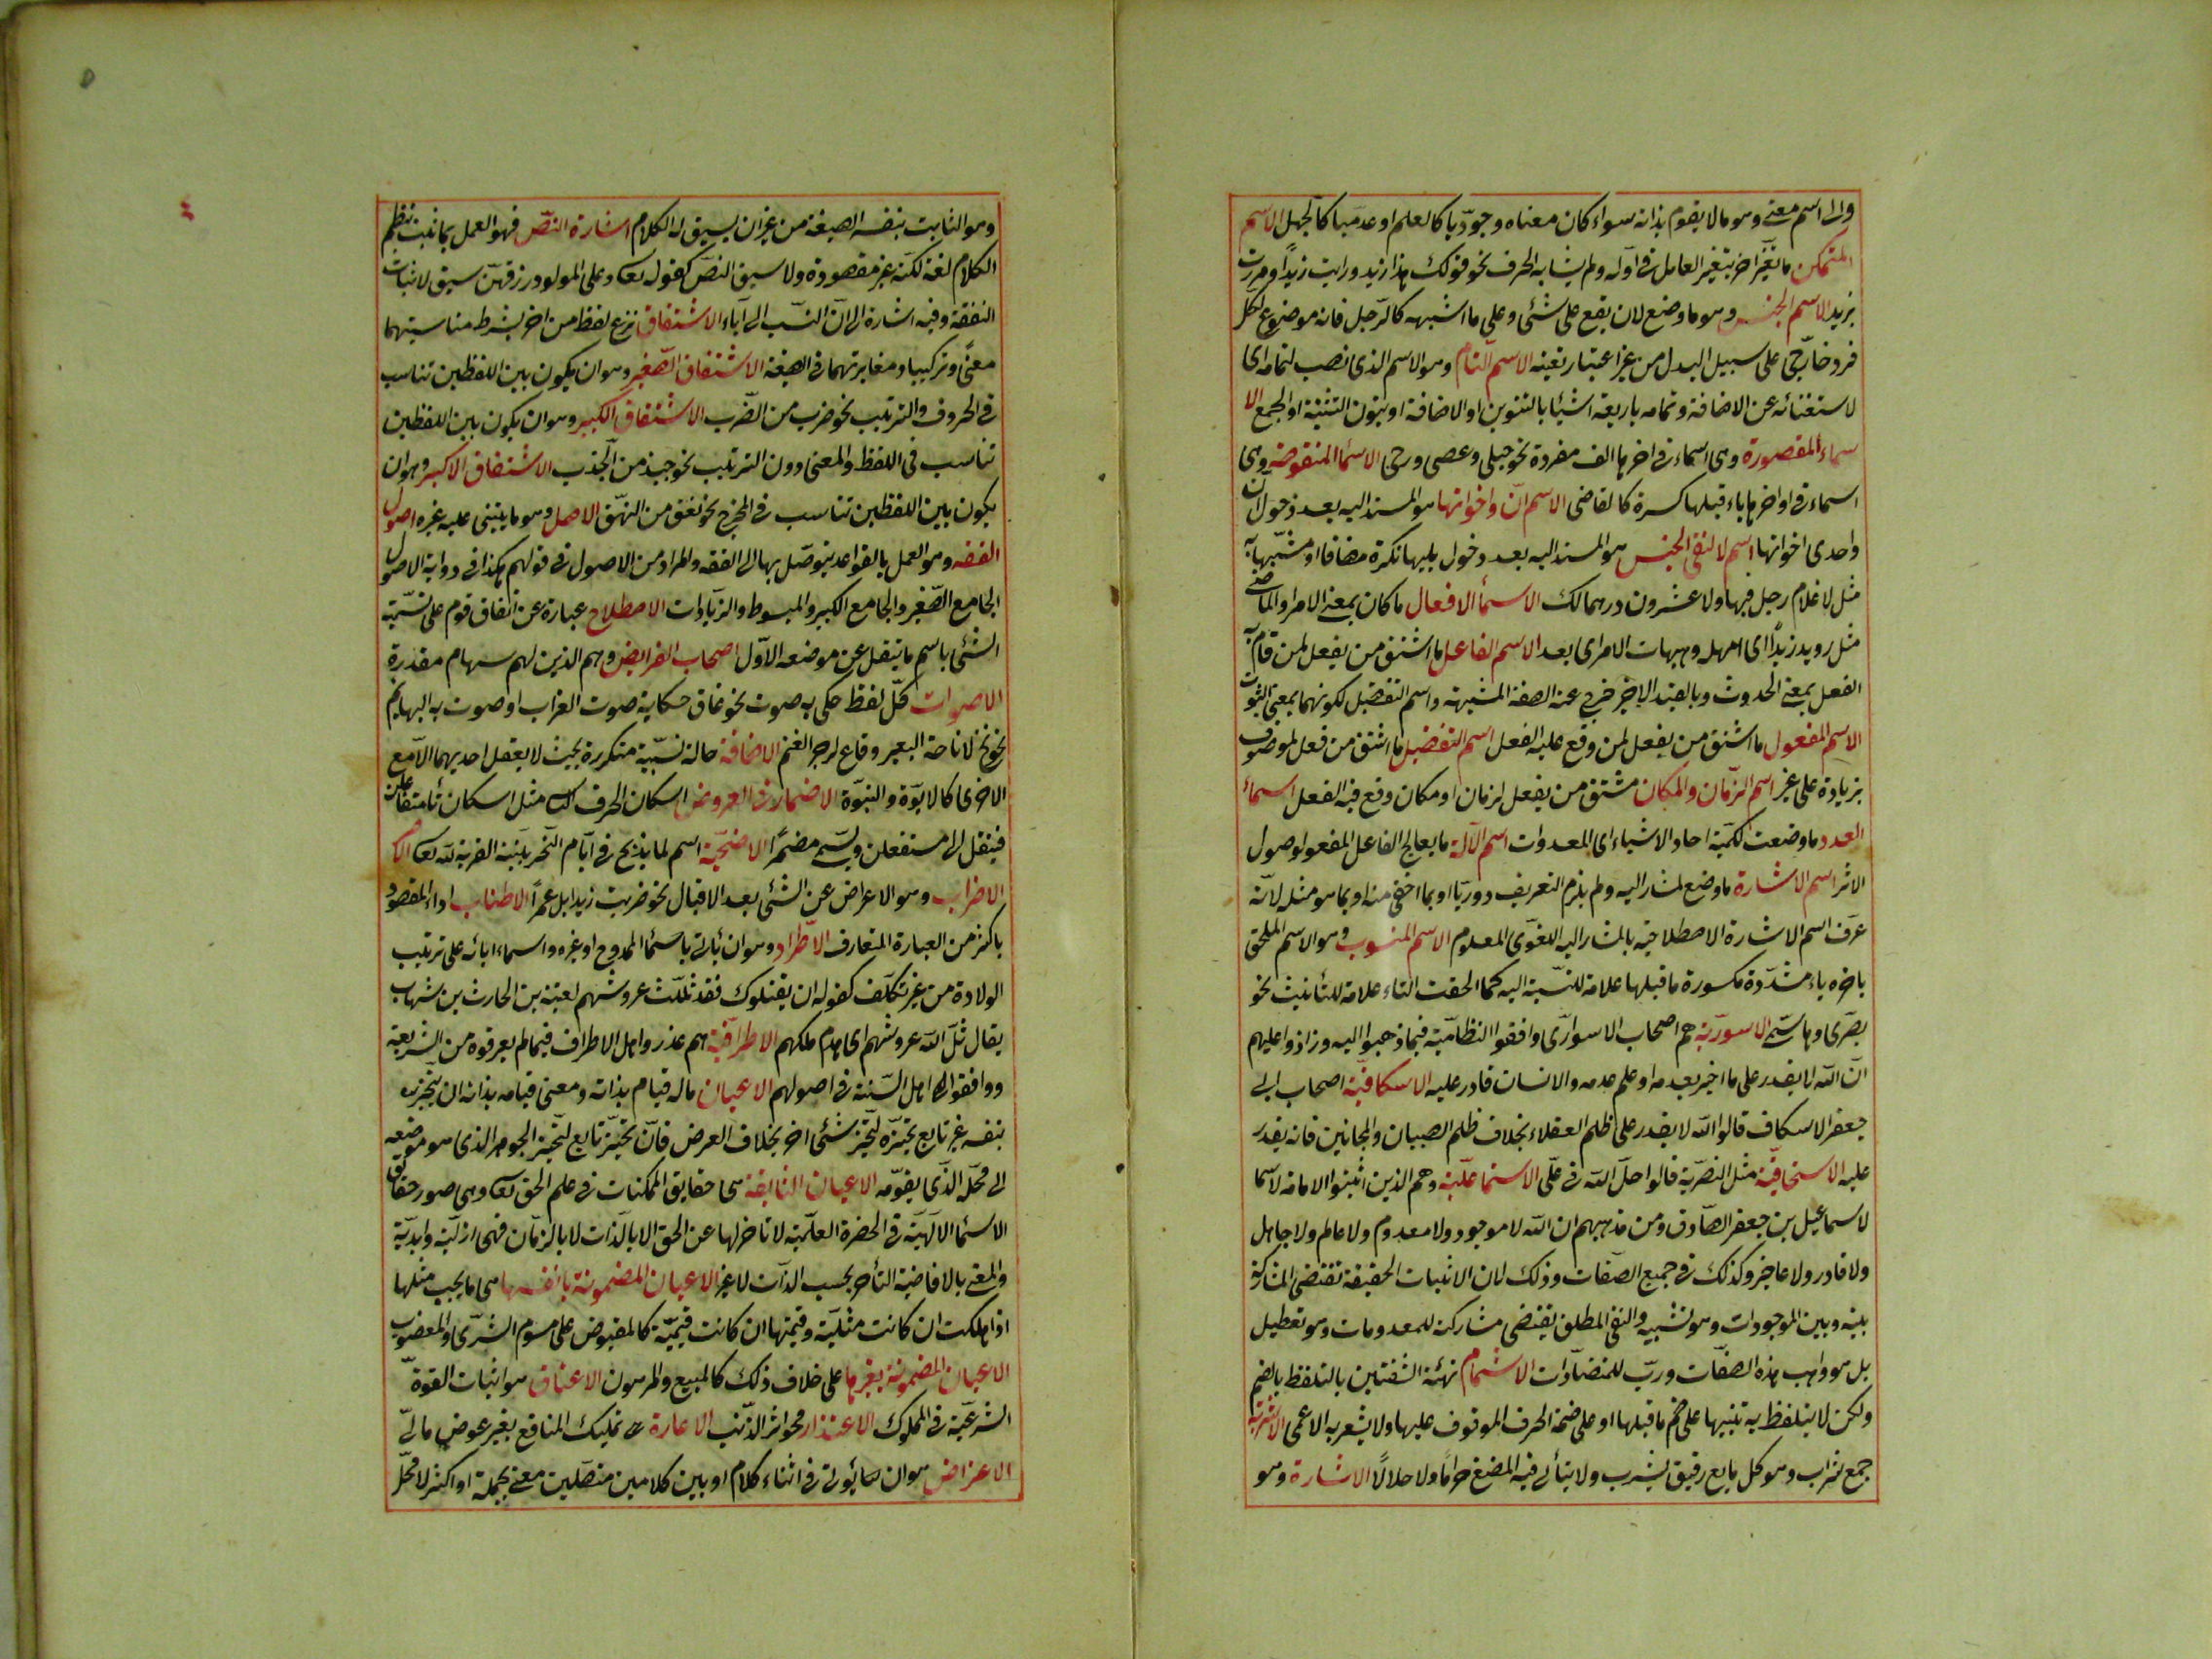 والى اسم معنى وهو مالا يقوم بذاته سواء كان معناه وجوديا كالعلم او عدميا كالجهل الاسم
المتمكن ما تغير اخره بتغير العامل فى اوله ولم يشابه الحرف نحو قولك هذا زيد ورايت زيدا ومررت
بزيد الاسم الجنس وهو ما وضع لان يقع على شئ وعلى ما اشبهه كالرجل فانه موضوع لكل
فرد خارجى على سبيل البدل من غير اعتبار تعينه الاسم التام وهو الاسم الذى نصب لتمامه اى
لاستغنائه عن الاضافة وتمامه باربعة اشيا بالتنوين او الاضافة او بنون التثنية او الجمع الا
سماء المقصورة وهى اسماء فى اخرها الف مفردة نحو حبلى وعصى ورحى الاسما المنقوصة وهى
اسماء فى اواخرها ياء قبلها كسرة كالقاضى الاسم ان واخواتها هو المسند اليه بعد دخول ان
واحدى اخواتها اسم لا لنفى الجنس هو المسند اليه بعد دخول يليها نكرة مضافا او مشبها به
مثل لا غلام رجل فيها ولا عشرون درهما لك الاسما الافعال ما كان بمعنى الامر او الماضى
مثل رويد زيدا اى امهله وهيهات الامر اى بعد الاسم الفاعل ما اشتق من يفعل لمن قام به
الفعل بمعنى الحدوث وبالقيد الاخير خرج عنه الصفة المشبهة واسم التفضيل لكونهما بمعنى الثبوت
الاسم المفعول ما اشتق من يفعل لمن وقع عليه الفعل اسم التفضيل ما اشتق من فعل لموصوف
بزيادة على غيره اسم الزمان والمكان مشتق من يفعل لزمان او مكان وقع فيه الفعل اسماء
العدد ما وضعت لكمية احاد الاشياء اى المعدوات اسم الآلة ما يعالج الفاعل المفعول لوصول
الاثر اسم الاشارة ما وضع لمشار اليه ولم يلزم التعريف دوريا او بما اخفى منه او بما هو مثله لانه
عرف اسم الاشارة الاصطلاحية بالمشار اليه اللغوى المعلوم الاسم المنسوب وهو الاسم الملحق
باخره ياء مشددة مكسورة ما قبلها علامة للنسبة اليه كما الحقت التاء علامة للتأنيث نحو
بصرى وهاشمى الاسورية هم اصحاب الاسوارى وافقوا النظامية فيما ذهبوا اليه وزادوا عليهم
ان الله لا يقدر على ما اخبر بعدمه او علم عدمه والانسان قادر عليه الاسكافية اصحاب ابى
جعفر الاسكاف قالوا الله لا يقدر على ظلم العقلاء بخلاف ظلم الصبيان والمجانين فانه يقدر
عليه الاسحاقية مثل النصرية قالوا حل الله فى على الاسماعلية وهم الذين اثبتوا الامامة لاسما
لاسماعيل بن جعفر الصادق ومن مذهبهم ان الله لا موجود ولا معدوم ولا عالم ولا جاهل
ولا قادر ولا عاجز وكذلك فى جميع الصفات وذلك لان الاثبات الحقيقة تقتضى المشاركة
بينه وبين الموجودات وهو تشبيه والنفى المطلق يقتضى مشاركته للمعدومات وهو تعطيل
بل هو واهب هذه الصفات ورب للمتضادات الاشمام تهئة الشفتين بالتلفظ بالضم
ولكن لا يتلفظ به تنبيها على ضم ما قبلها او على ضمة الحرف الموقوف عليها ولا يشعر به الاعمى الاشربة
جمع شراب وهو كل مايع رقيق يشرب ولا يتأتى فيه المضغ حراما ولا حلالا الاشارة وهو
وهو الثابت بنفسه الصيغة من غير ان يسيق له الكلام اشارة النص فهو العمل بما ثبت بنظم
الكلام لغة لكنه غير مقصودة ولا سيق النص كقوله تعا وعلى المولود رزقهن سيق لاثبات
النفقة وفيه اشارة الى ان النسب الى الآباء الاشتقاق نزع لفظ من اخر بشرط مناسبتهما
معنى وتركيبا ومغايرتهما فى الصيغة الاشتقاق الصغير وهو ان يكون بين اللفظين تناسب
فى الحروف والترتيب نحو ضرب من الضرب الاشتقاق الكبير وهو ان يكون بين اللفظين
تناسب فى اللفظ والمعنى دون الترتيب نحو جبذ من الجذب الاشتقاق الاكبر وهو ان
يكون بين اللفظين تناسب فى المخرج نحو نعق من النهق الاصل وهو ما يبتنى عليه غيره اصول
الفقه وهو العمل بالقواعد يتوصل بها الى الفقه والمراد من الاصول فى قولهم هكذا فى رواية الاصول
الجامع الصغير والجامع الكبير والمبسوط والزيادات الاصطلاح عبارة عن اتفاق قوم على تسمية
الشئ باسم ما ينقل عن موضعه الاول اصحاب الفرايض وهم الذين لهم سهام مقدرة
الاصوات كل لفظ حكى به صوت نحو غاق حكاية صوت الغراب او صوت به البهايم
نحو نخ لاناخة البعير وقاع لزجر الغنم الاضافة حالة نسبية متكررة بحيث لا يعقل احديهما الا مع
الاخرى كالابوة والنبوة الاضمار فى العروض اسكان الحرف الثانى مثل اسكان تا متفاعلن
فينقل الى مستفعلن ويسمى مضمرا الاضحية اسم لما يذبح فى ايام النحر بنية القربة لله تعا
الاضراب وهو الاعراض عن الشئ بعد الاقبال نحو ضربت زيدا بل عمرا الاطناب اداء المقصود
باكثر من العبارة المتعارف الاطراد وهو ان تأتى باسما الممدوح او غيره واسماء ابائه على ترتيب
الولادة من غير تكلف كقوله ان يقتلوك فقد ثللت عروشهم لعتيبة بن الحارث بن شهاب
يقال ثل الله عروشهم اى هدم ملكهم الاطرافية هم عذروا اهل الاطراف فيما لم يعرفوه من الشريعة
ووافقوا اهل السنة فى اصولهم الاعيان ماله قيام بذاته ومعنى قيامه بذاته ان يتحيزه
بنفسه غير تابع تحيزه لتحيز شئ اخر بخلاف العرض فان تحيزه تابع لتحيز الجوهر الذى هو موضعه
الى محله الذى يقومه الاعيان الثابتة هى حقايق الممكنات فى علم الحق تعا وهى صور حقائق
الاسما الالهية فى الحضرة العلمية لا تاخر لها عن الحق الا بالذات لا بالزمان فهى ازلية وابدية
والمعنى بالاضافية التأخر بحسب الذات لا غير الاعيان المضمونة بانفسها هى ما يجب مثلها
اذا هلكت ان كانت مثلية وقيمتها ان كانت قيمية كالمقبوض على سوم الشرى والمغصوب
الاعيان المضمونة بغيرها على خلاف ذلك كالمبيع والمرهون الاعتاق هو اثبات القوة
الشرعية فى المملوك الاعتذار محو اثر الذنب الاعارة هى تمليك المنافع بغير عوض مالى
الاعتراض هو ان يأتى فى اثناء كلام او بين كلامين متصلين معنى بجملة او اكثر لا محل